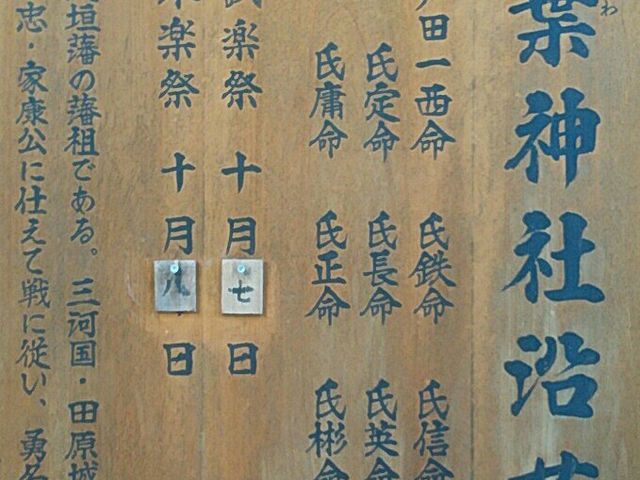 わ
葉神社沿革
戸田一西命 氏鉄命 氏信命
氏定命 氏長命 氏英命
氏庸命 氏正命 氏彬命
楽祭 十月七日
楽祭 十月八日
垣藩の藩祖である。三河国・田原城
忠・家康公に仕えて戦に従い、勇名